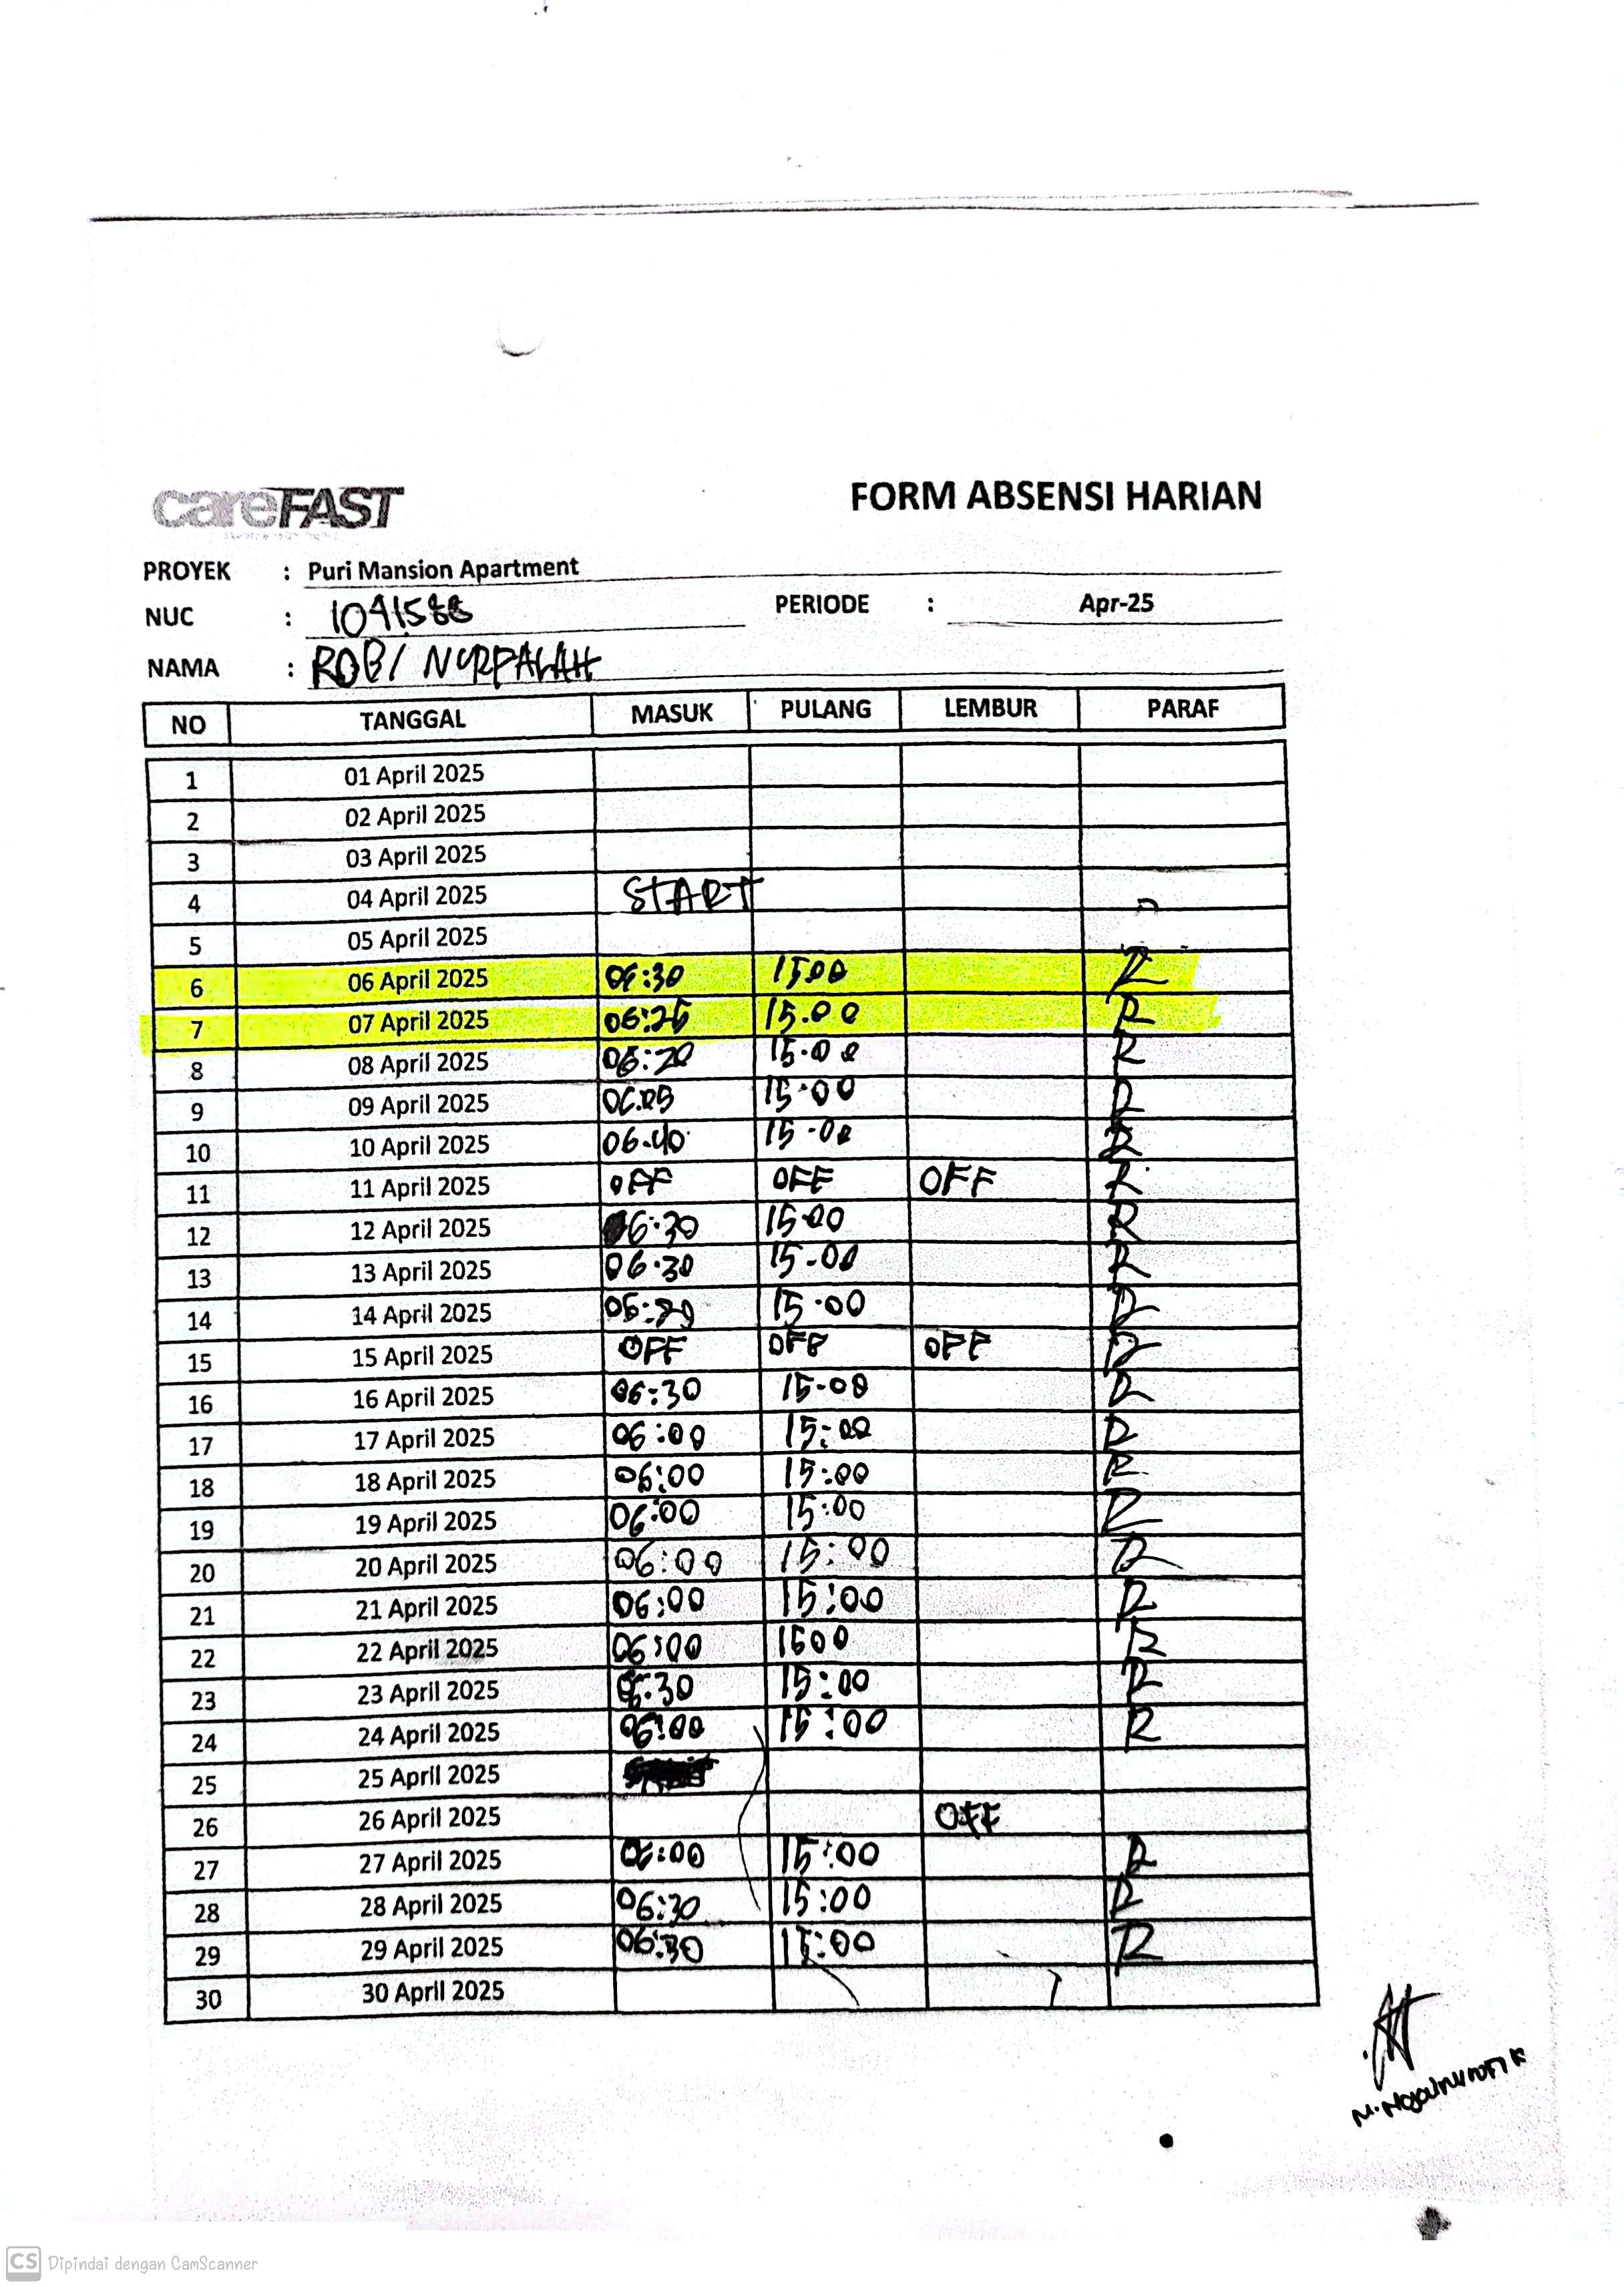 careFAST
FORM ABSENSI HARIAN
PROYEK : Puri Mansion Apartment
NUC : 1091588 PERIODE : Apr-25
NAMA : ROBI NURPALAH
NO TANGGAL MASUK PULANG LEMBUR PARAF
1 01 April 2025
2 02 April 2025
3 03 April 2025
4 04 April 2025 START
5 05 April 2025
6 06 April 2025 06:30 15.00 R
7 07 April 2025 06:25 15.00 R
8 08 April 2025 06:20 15.00 R
9 09 April 2025 15.00 R
10 10 April 2025 06.40 15-00 R
11 11 April 2025 OFF OFF OFF R
12 12 April 2025 06.30 15-00 R
13 13 April 2025 06.30 15-00 R
14 14 April 2025 15.00 R
15 15 April 2025 OFF OFF OFF R
16 16 April 2025 06:30 15-00 R
17 17 April 2025 06:00 15:00 R
18 18 April 2025 06:00 15:00 R
19 19 April 2025 06:00 15:00 R
20 20 April 2025 06:00 15:00 R
21 21 April 2025 06:00 15:00 R
22 22 April 2025 06:00 1500 R
23 23 April 2025 06.30 15:00 R
24 24 April 2025 06:00 15:00 R
25 25 April 2025
26 26 April 2025 OFF
27 27 April 2025 06:00 15:00 R
28 28 April 2025 06:30 15:00 R
29 29 April 2025 06:30 15:00 R
30 30 April 2025
CS Dipindai dengan CamScanner